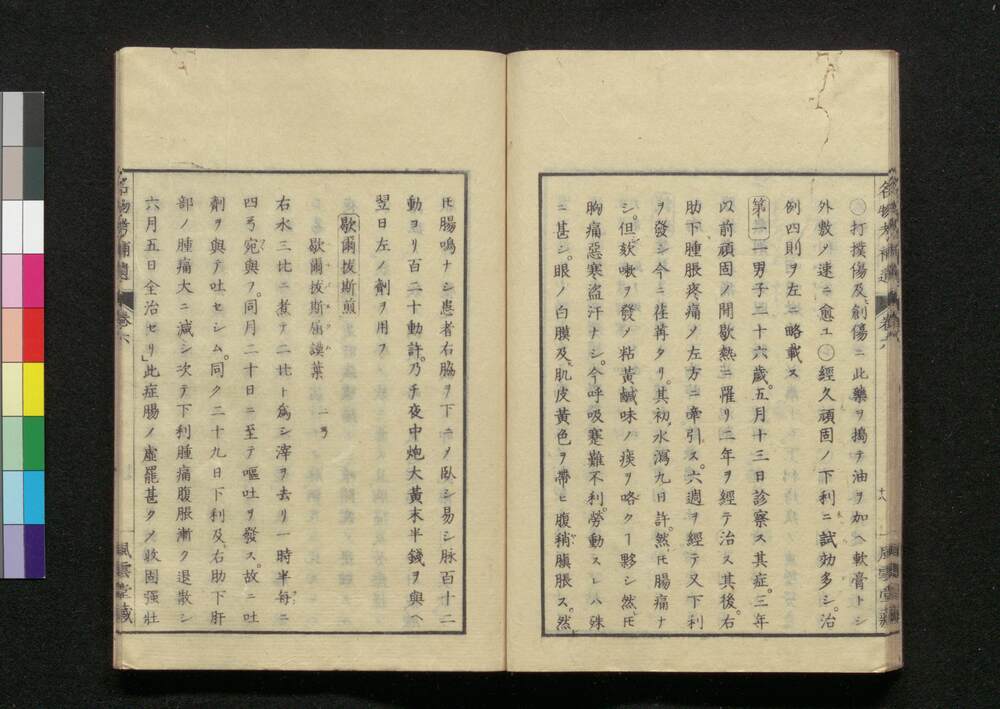 ㊀打撲傷及創傷ニ此藥ヲ搗テ油ヲ加ヘ軟膏トシ
外敷ノ速ニ愈ユ㊁經久頑固ノ下利ニ試効多シ治
例四則ヲ左ニ略載ス
第一一男子二十六歲。五月十三日診察ス其症。三年
以前頑固ノ間歇熱ニ罹リ二年ヲ經テ治ス其後。右
肋下腫脹疼痛ノ左方ニ牽引ス。六週ヲ經テ又下利
ヲ發シ今ニ荏苒タリ。其初水瀉九日許。然𪜈腸痛ナ
シ。但欬嗽ヲ發ノ粘黃鹹味ノ痰ヲ咯クー夥シ然𪜈
胸痛惡寒盜汗ナシ。今呼吸蹇難不利。勞動スレハ殊
ニ甚シ。眼ノ白膜及肌皮黃色ヲ帶ヒ腹稍膹脹ス。然
𪜈腸鳴ナシ患者右脇ヲ下ニノ臥シ易シ脉百十二
動ヨリ百二十動許。乃チ夜中炮大黃末半錢ヲ與ヘ
翌日左ノ劑ヲ用フ
歇爾拔斯煎
歇爾拔斯屈謨葉 一弓
右水三匕ニ煮テ二匕ト爲シ滓ヲ去リ一時半每ニ
四弓宛與フ。同月二十日ニ至テ嘔吐ヲ發ス。故ニ吐
劑ヲ與テ吐セシム。同ク二十九日下利及右肋下肝
部ノ腫痛大ニ減シ次テ下利腫痛腹脹漸ク退散シ
六月五日全治セリ」此症腸ノ虛羅甚タノ收固强壯
名物考補遺
卷六
風雲堂藏